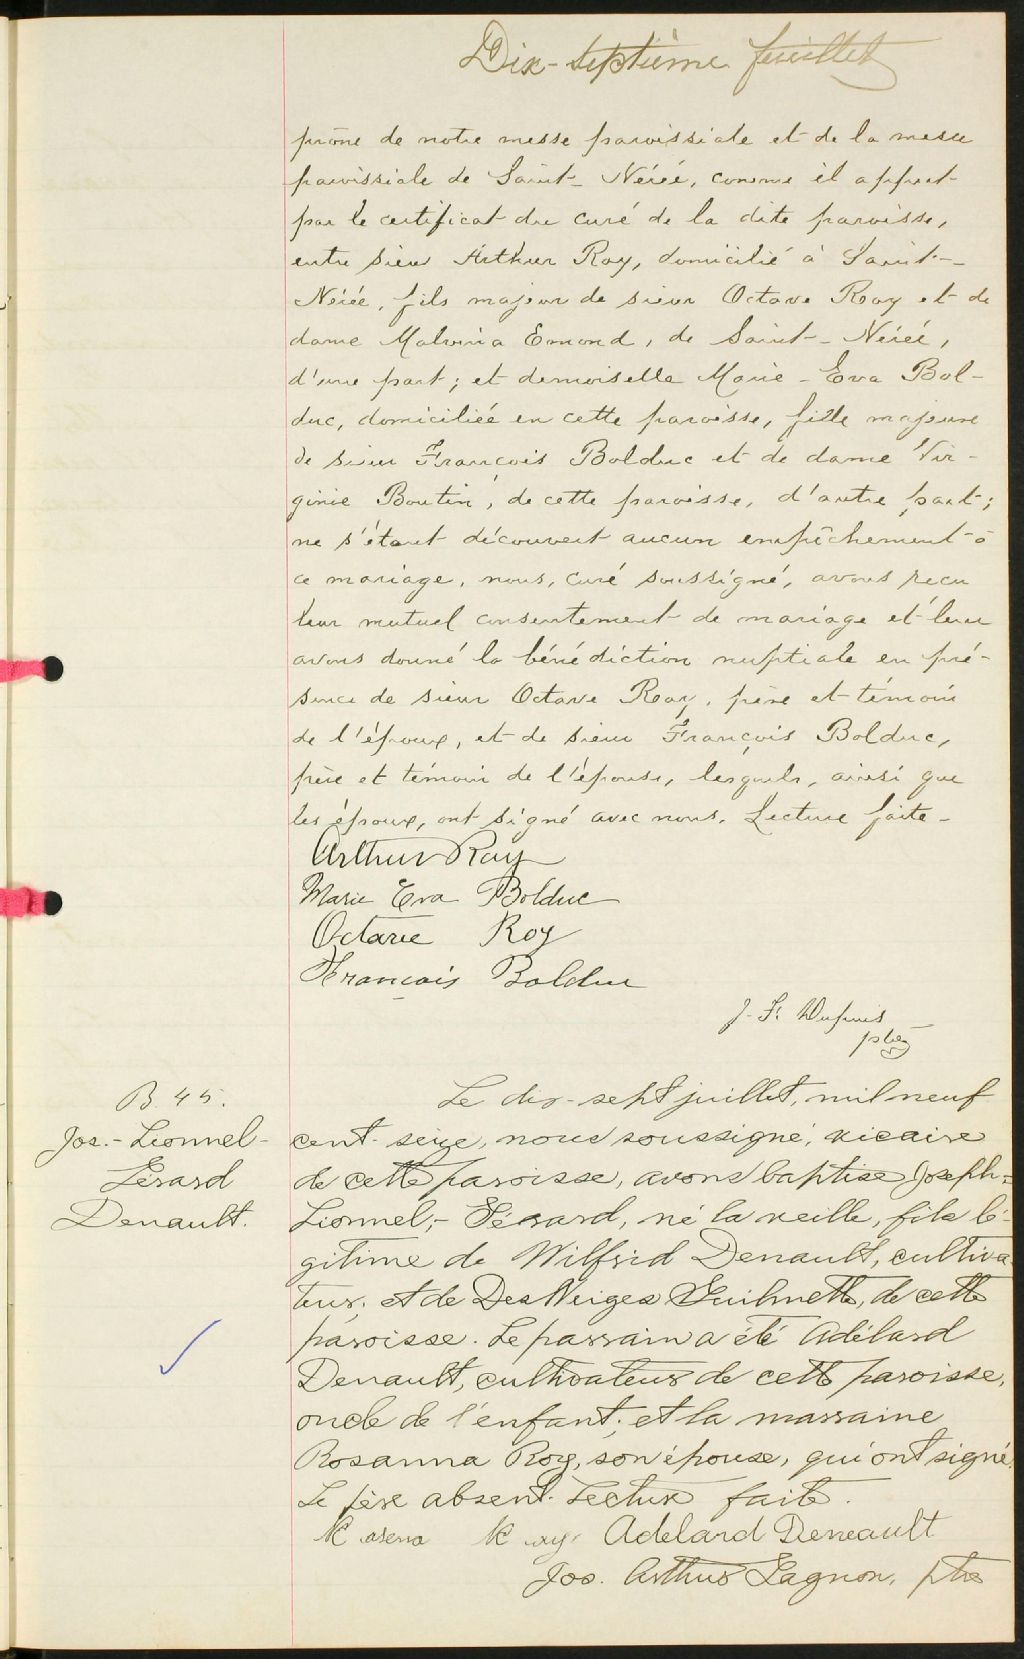 Dix-septième feuillet
prône de notre messe paroissiale et de la messe
paroissiale de Saint-Nérée, comme il appert
par le certificat du curé de la dite paroisse,
entre sieur Arthur Roy, domicilié à Saint-
Nérée, fils majeur de sieur Octave Roy et de
dame Malvina Emond, de Saint-Nérée,
d'une part; et demoiselle Marie-Eva Bol-
duc, domiciliée en cette paroisse, fille majeure
de sieur François Bolduc et de dame Vir-
ginie Boutin, de cette paroisse, d'autre part;
ne s'étant découvert aucun empêchement à
ce mariage, nous, curé soussigné, avons reçu
leur mutuel consentement de mariage et leur
avons donné la bénédiction nuptiale en pré-
sence de sieur Octave Roy, père et témoin
de l'époux, et de sieur François Bolduc,
père et témoin de l'épouse, lesquels, ainsi que
les époux, ont signé avec nous. Lecture faite-
Arthur Roy
Marie Eva Bolduc
Octave Roy
François Bolduc
J. F. Dupuis
ptre
B. 45.
Jos.-Lionnel-
Gérard
Denault.
Le dix-sept juillet, mil neuf
cent seize, nous soussigné, vicaire
de cette paroisse, avons baptisé Joseph-
Lionnel,-Gérard, né la veille, fils lé-
gitime de Wilfrid Denault, cultiva-
teur, et de DesNeiges Guilmette, de cette
paroisse. Le parrain a été Adélard
Denault, cultivateur de cette paroisse,
oncle de l'enfant, et la marraine
Rosanna Roy, son épouse, qui ont signé.
Le père absent. Lecture faite.
Adelard Deneault
Jos. Arthur Gagnon, ptre